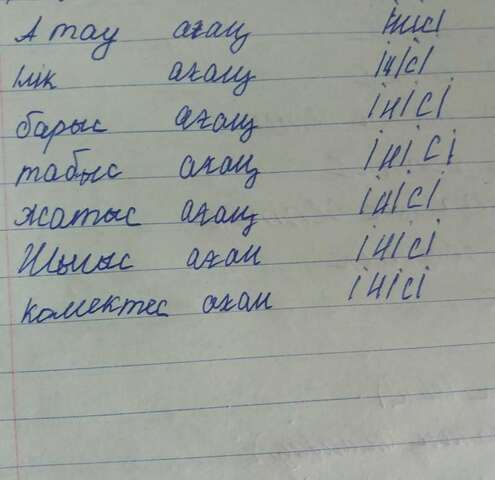 Атау ағаң інісі
ілік ағаң інісі
барыс ағаң інісі
табыс ағаң інісі
жатыс ағаң інісі
Шығыс ағаң інісі
комектес ағаң інісі